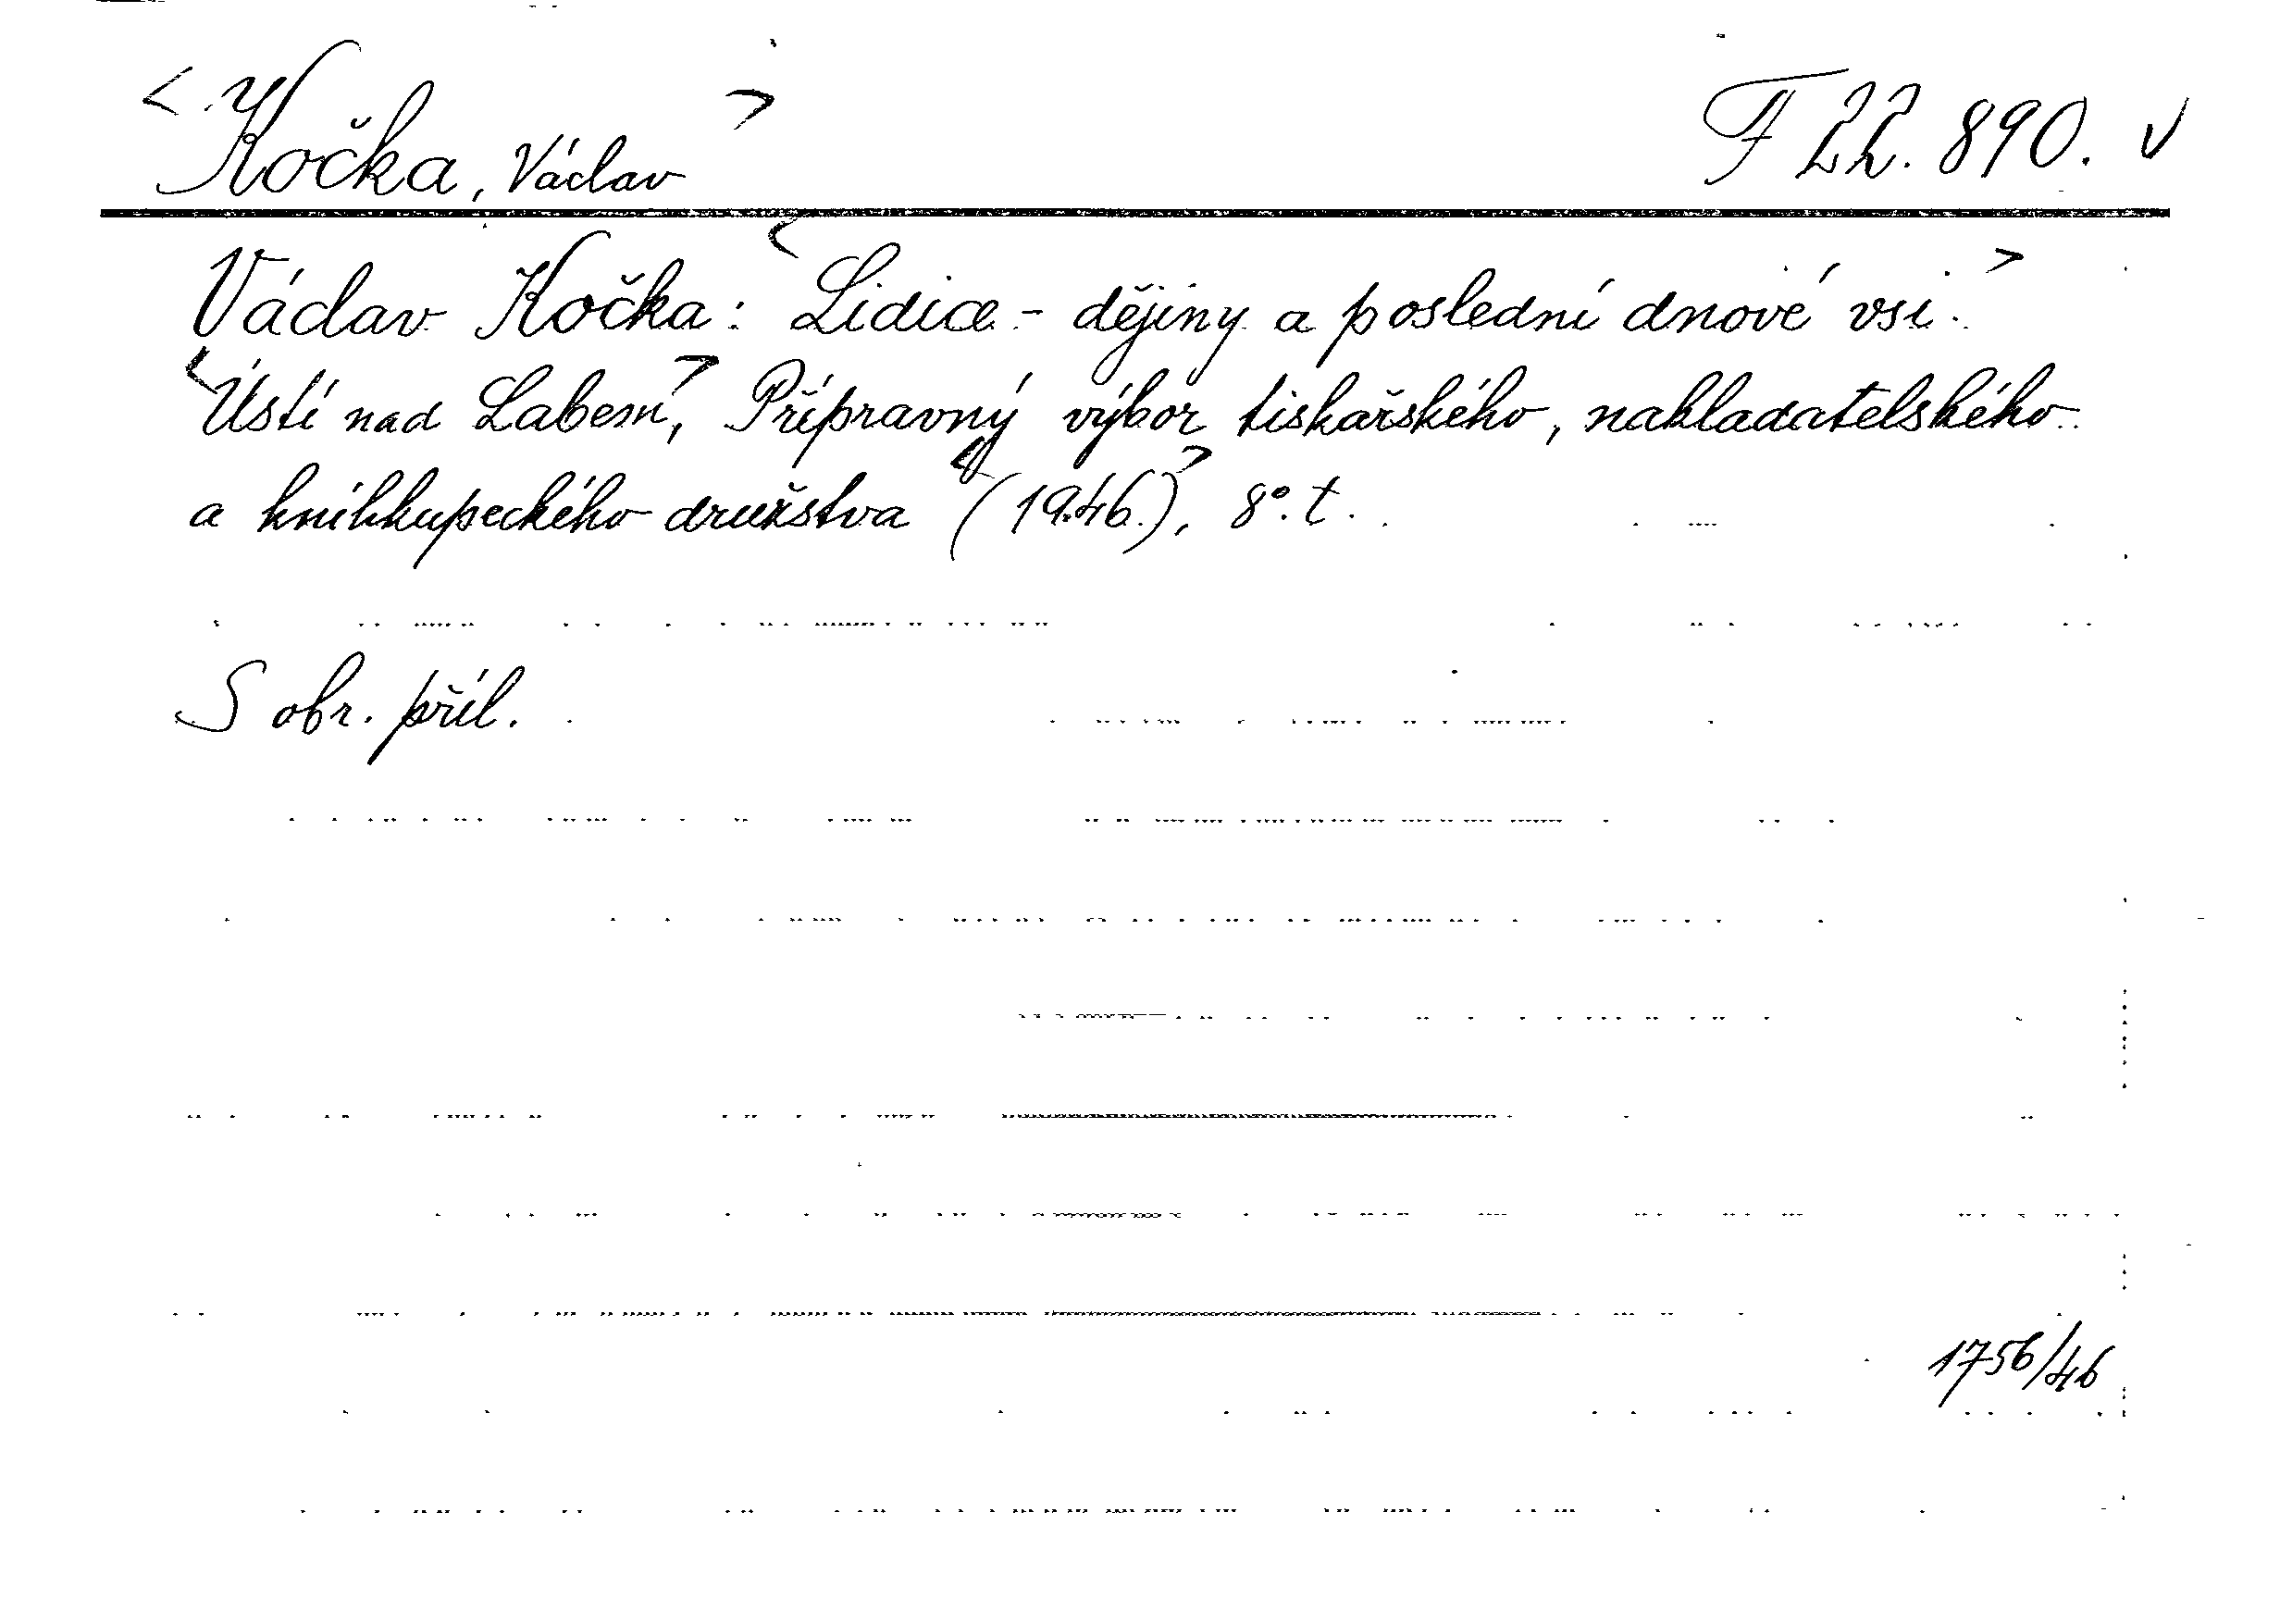 <Kočka, Václav> F 22.890. v
Václav Kočka: <Lidice - dějiny a poslední dnové vsi.>
<Ústí nad Labem>, Přípravný výbor tiskařského, nakladatelského
a knihkupeckého družstva <(1946.)>, 8°. t.
S obr. příl.
1756/46